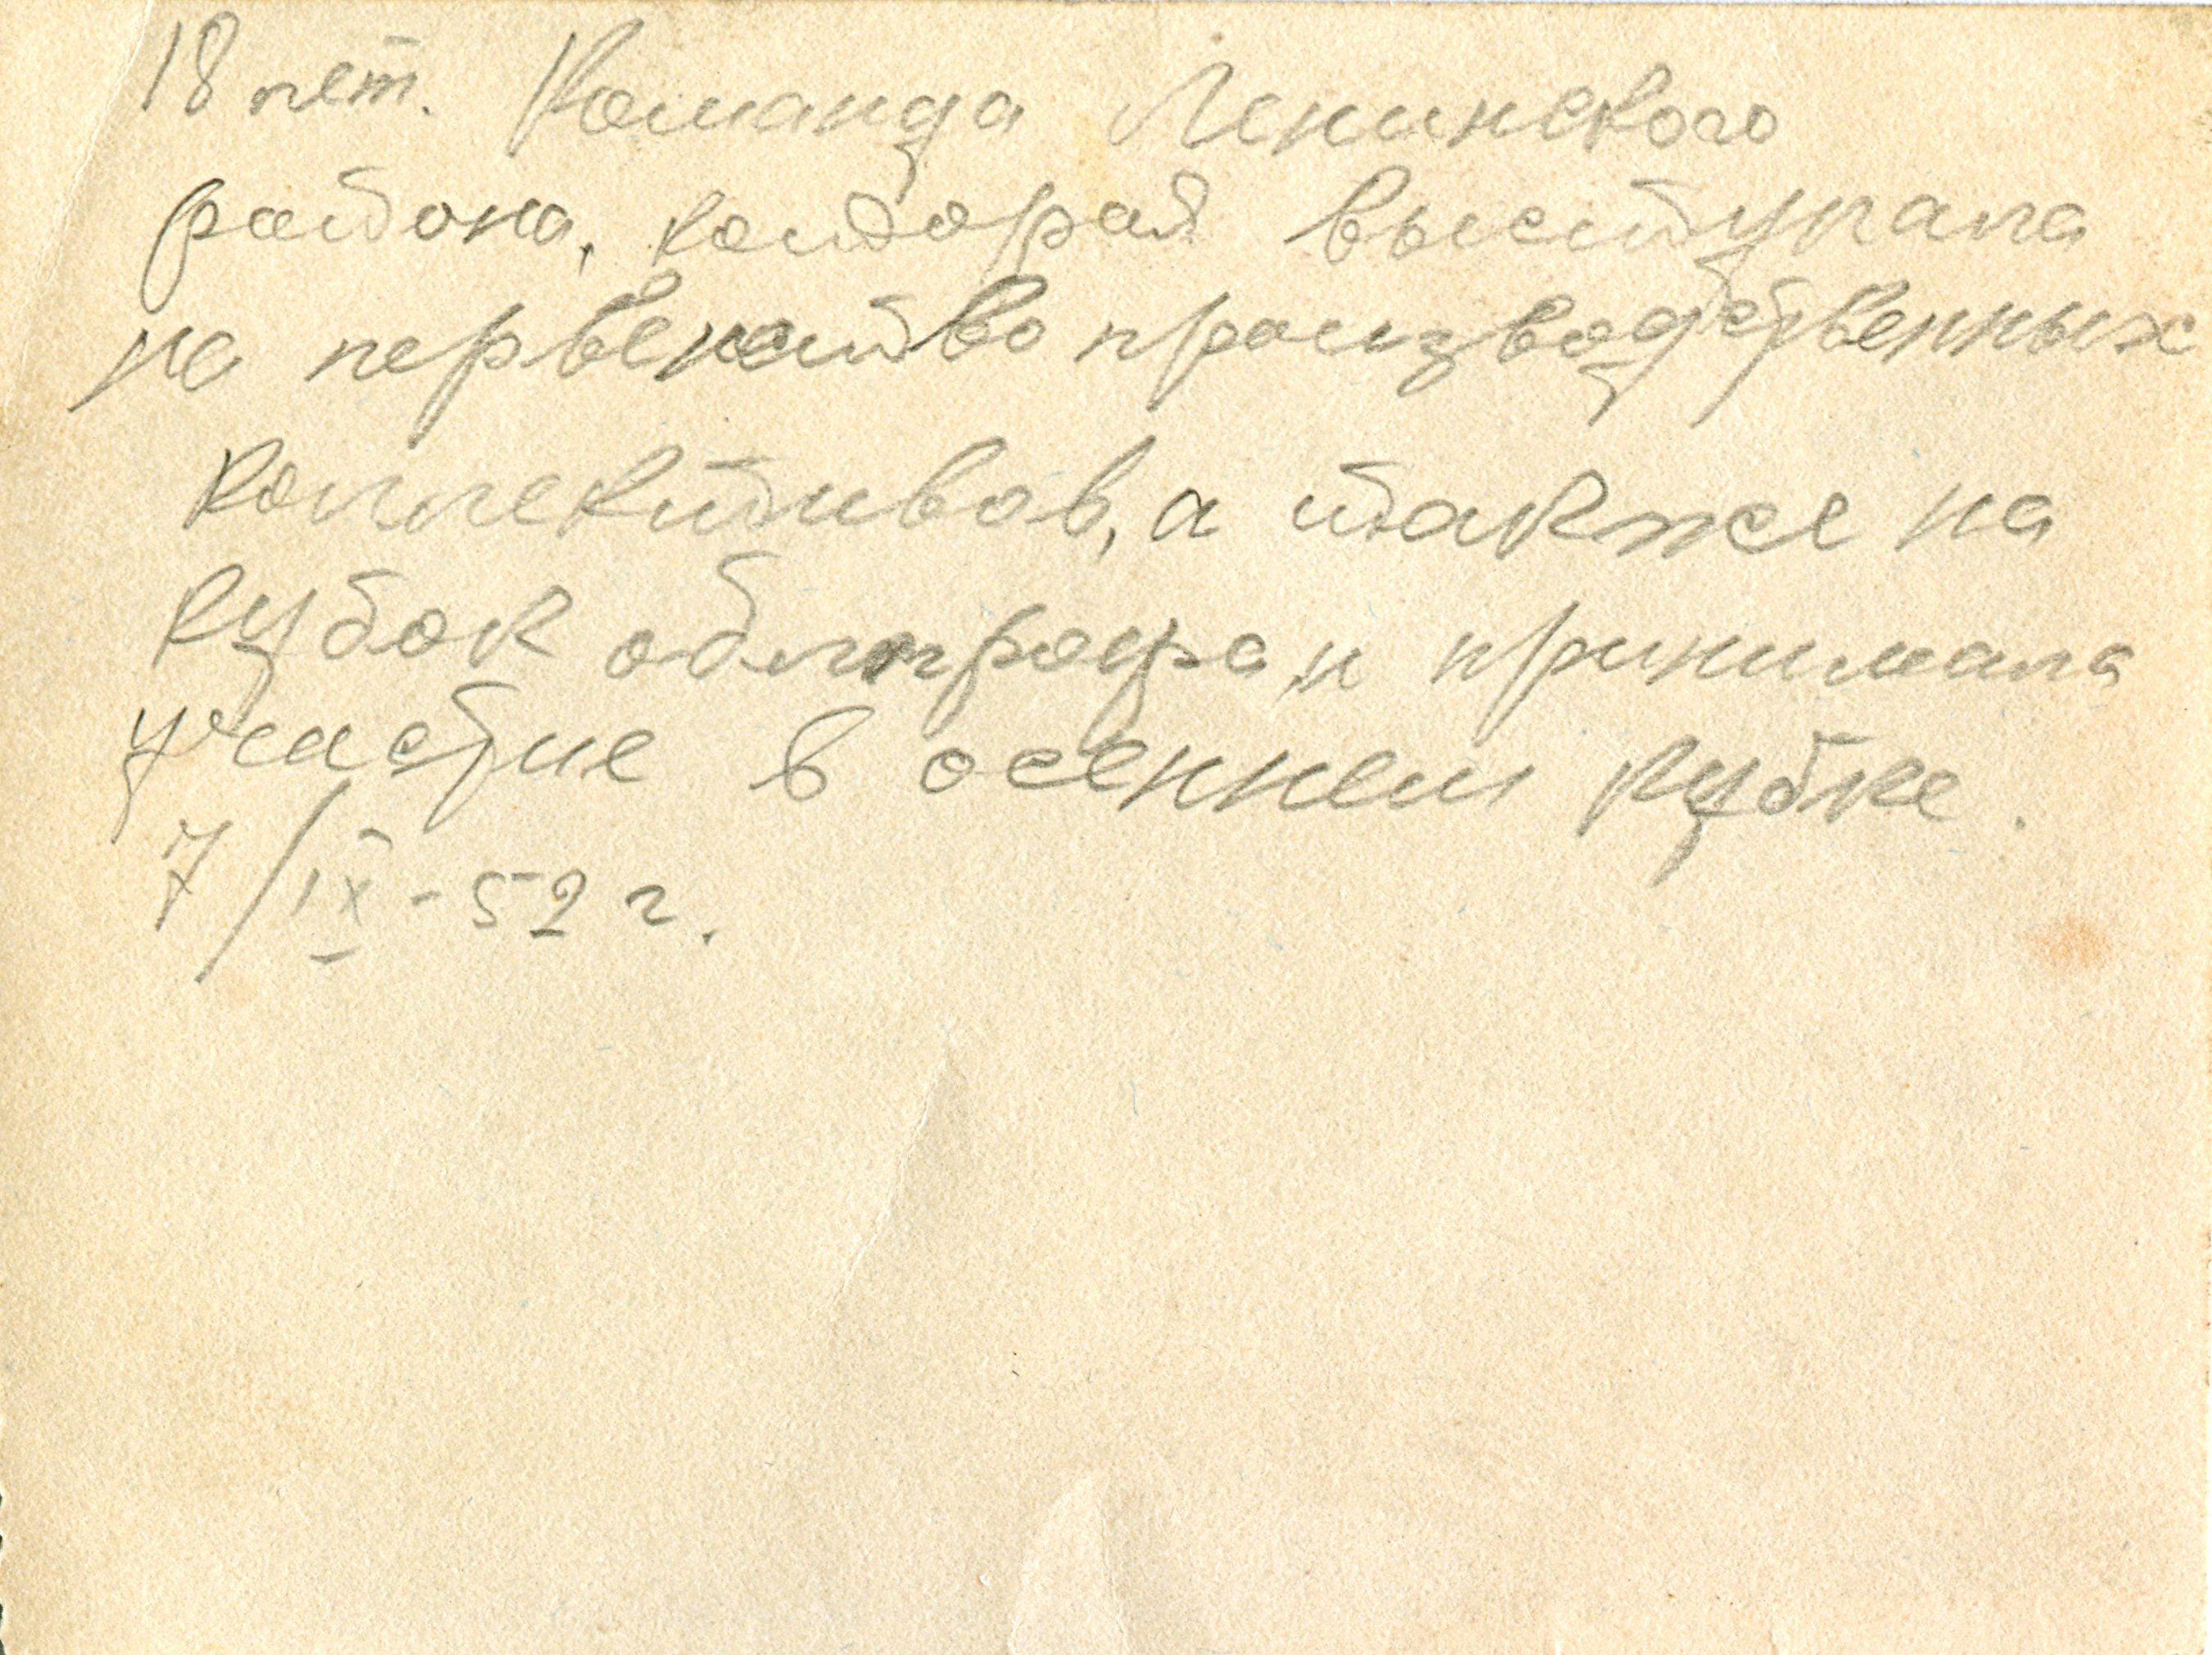 18 лет. Команда Ленинского
района, которая выступала
на первенство производственных
коллективов, а также на
кубок облпрофа, и принимала
участие в осеннем кубке.
7/IX-52 г.